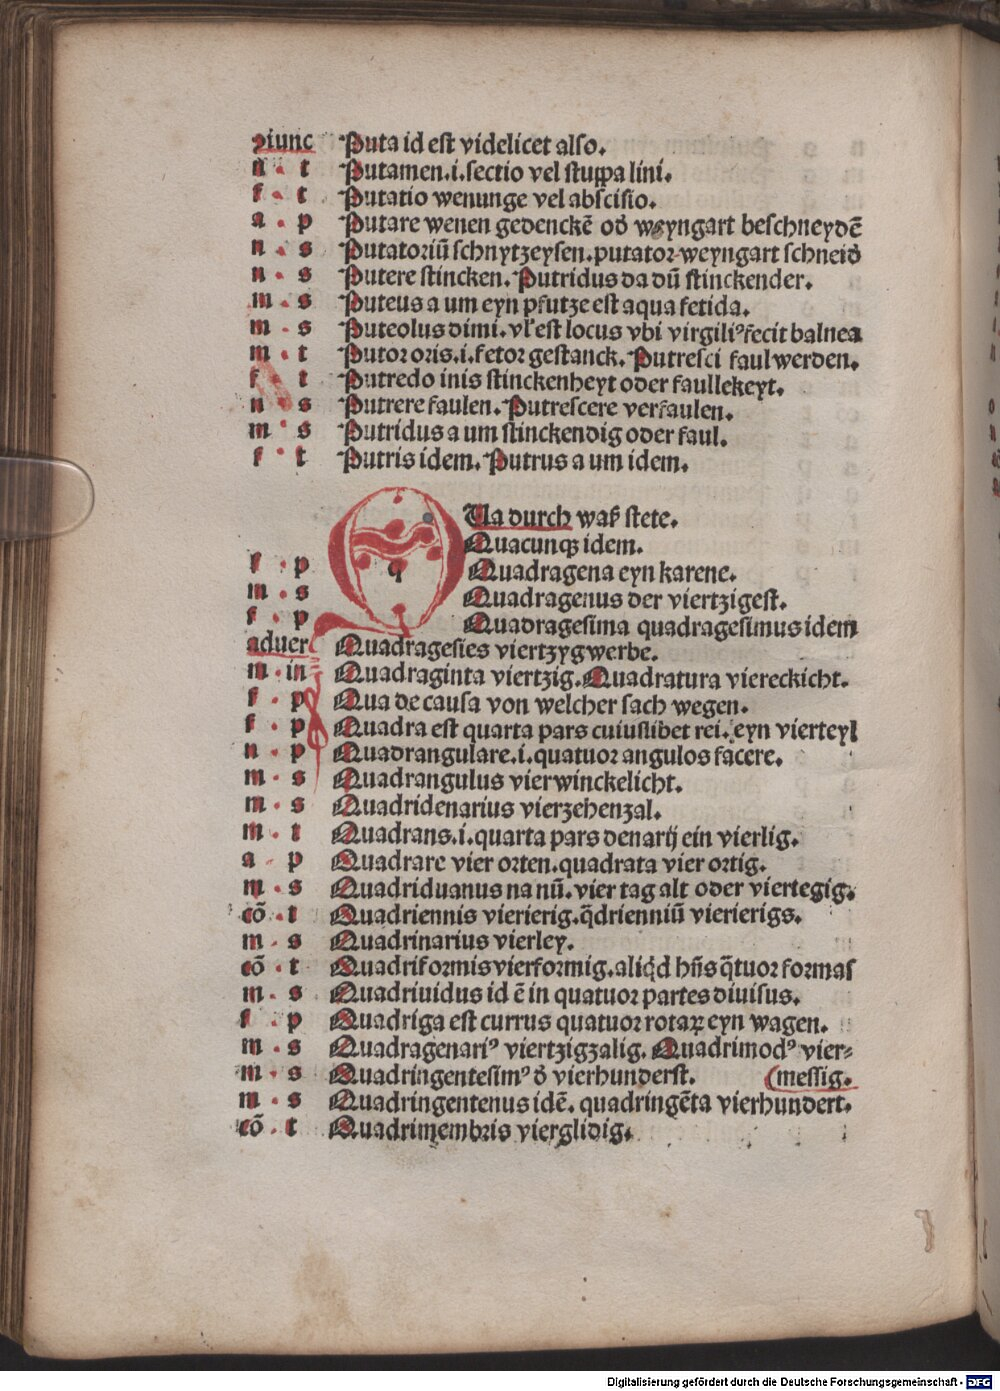 ꝯiunc Puta id est videlicet also.
n · t Putamen.i.sectio vel stuppa lini.
f · t Putatio wenunge vel abscisio.
a · p Putare wenen gedenckē od̕ weyngart beschneydē
n · s Putatoriū schnytzeysen.putator weyngart schneid̕
n · s Putere stincken. Putridus da dū stinckender.
m · s Puteus a um eyn pfutze est aqua fetida.
m · s Puteolus dimi. vl' est locus vbi virgiliꝰ fecit balnea
m · t Putor oris.i.fetor gestanck. Putresci faul werden.
f · t Putredo inis stinckenheyt oder faullekeyt.
n · s Putrere faulen. Putrescere verfaulen.
m · s Putridus a um stinckendig oder faul.
f · t Putris idem. Putrus a um idem.
QUa durch waß stete.
Quacunqꝫ idem.
f · p Quadragena eyn karene.
m · s Quadragenus der viertzigest.
f · p Quadragesima quadragesimus idem
aduer Quadragesies viertzygwerbe.
m · in Quadraginta viertzig. Quadratura viereckicht.
f · p Qua de causa von welcher sach wegen.
f · p Quadra est quarta pars cuiuslibet rei. eyn vierteyl
n · p Quadrangulare.i.quatuor angulos facere.
m · s Quadrangulus vierwinckelicht.
m · s Quadridenarius vierzehenzal.
m · t Quadrans.i.quarta pars denarij ein vierlig.
a · p Quadrare vier orten.quadrata vier ortig.
m · s Quadriduanus na nū. vier tag alt oder viertegig.
cō · t Quadriennis vierierig.q̄drienniū vierierigs.
m · s Quadrinarius vierley.
cō · t Quadriformis vierformig.aliq̇d hn̄s q̄tuor formas
m · s Quadriuidus id ē in quatuor partes diuisus.
f · p Quadriga est currus quatuor rotaꝝ eyn wagen.
m · s Quadragenariꝰ viertzigzalig. Quadrimodꝰ vier⸗
m · s Quadringentesimꝰ d̕ vierhunderst. (messig.
m · s Quadringentenus idē. quadringēta vierhundert.
cō · t Quadrimembris vierglidig.
Digitalisierung gefördert durch die Deutsche Forschungsgemeinschaft - DFG